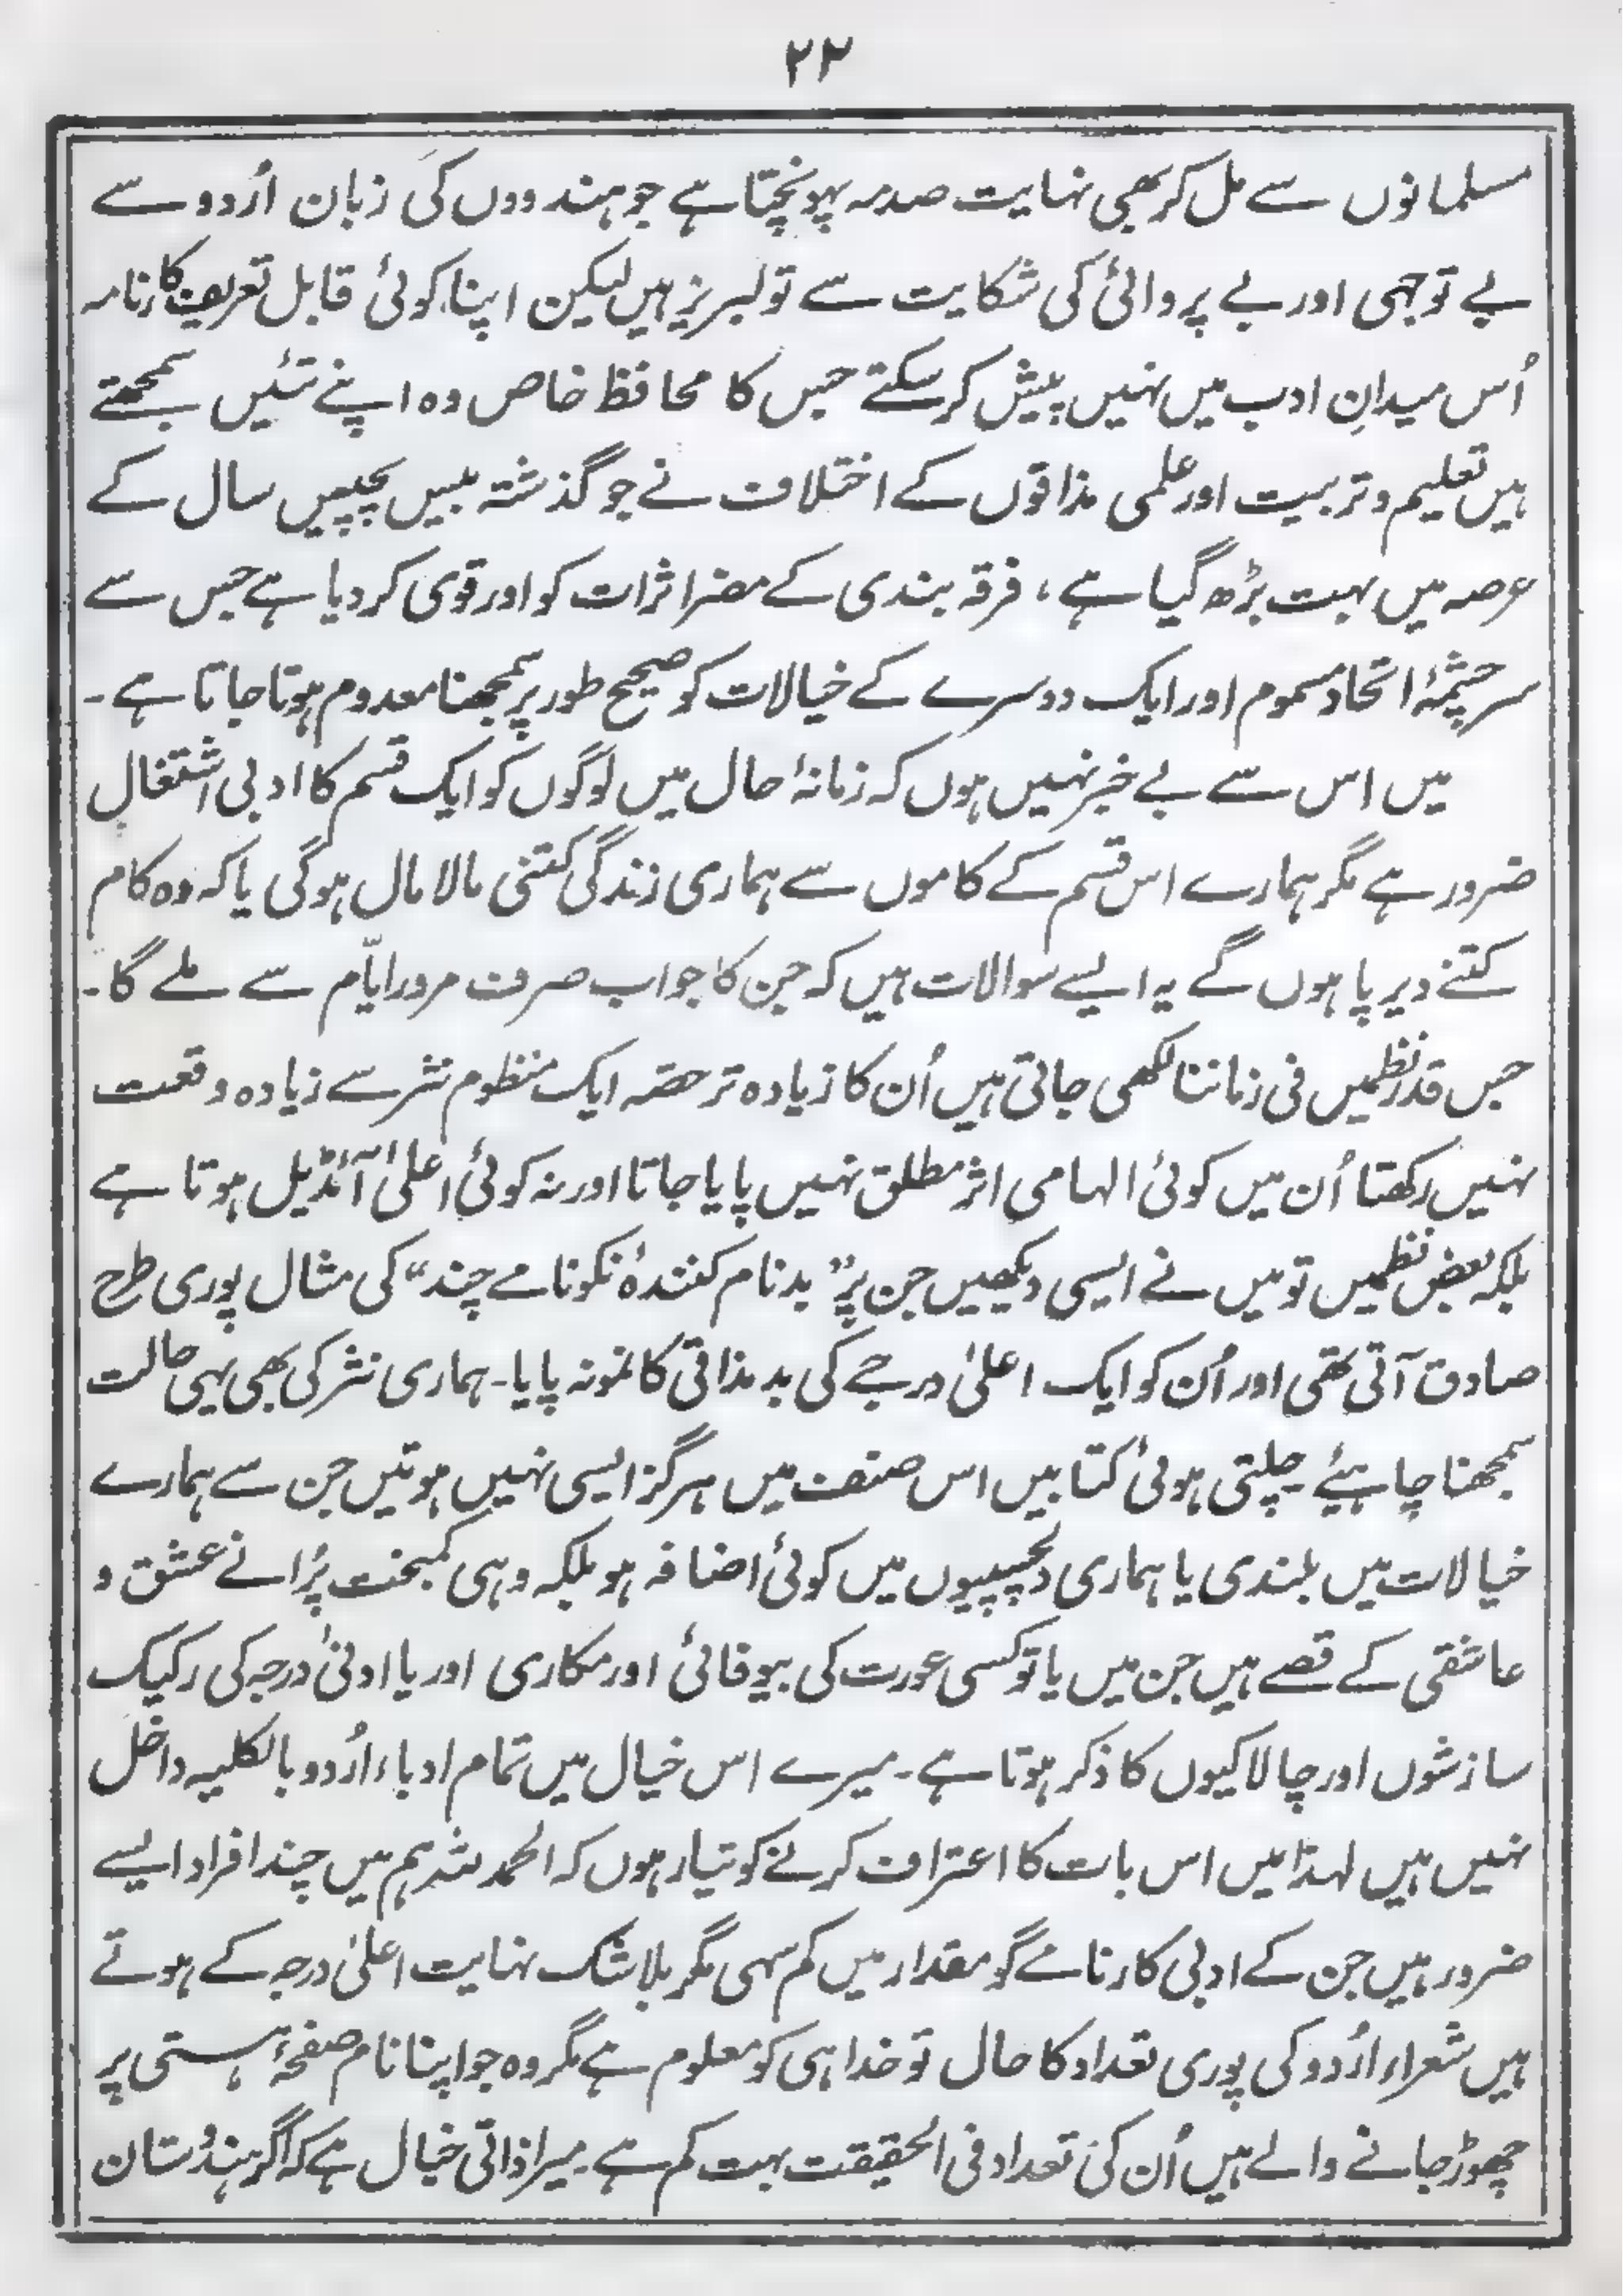 ۲۳
مسلمانوں سے مل کر بھی نہایت صدمہ پہونچتا ہے جو ہندووں کی زبان اُردو سے
بے توجہی اور بے پروائی کی شکایت سے تو لبریز ہیں لیکن اپنا کوئی قابل تعریف کارنامہ
اُس میدانِ ادب میں نہیں پیش کر سکتے جس کا محافظ خاص وہ اپنے تئیں سمجھتے
ہیں تعلیم و تربیت اور علمی مذاقوں کے اختلاف نے جو گذشتہ بیس پچیس سال کے
عرصہ میں بہت بڑھ گیا ہے، فرقہ بندی کے مضر اثرات کو اور قوی کر دیا ہے جس سے
سرچشمۂ اتحاد مسموم اور ایک دوسرے کے خیالات کو صحیح طور پر سمجھنا معدوم ہوتا جاتا ہے۔
میں اس سے بے خبر نہیں ہوں کہ زمانۂ حال میں لوگوں کو ایک قسم کا ادبی اشتغال
ضرور ہے مگر ہمارے اس قسم کے کاموں سے ہماری زندگی کتنی مالا مال ہوگی یا کہ وہ کام
کتنے دیر پا ہوں گے یہ ایسے سوالات ہیں کہ جن کا جواب صرف مرور ایّام سے ملے گا۔
جس قدر نظمیں فی زماننا لکھی جاتی ہیں اُن کا زیادہ تر حصّہ ایک منظوم نثر سے زیادہ وقعت
نہیں رکھتا اُن میں کوئی الہامی اثر مطلق نہیں پایا جاتا اور نہ کوئی اعلیٰ آئڈیل ہوتا ہے
بلکہ بعض نظمیں تو میں نے ایسی دیکھیں جن پر ”بدنام کنندۂ نکونامے چند“ کی مثال پوری طرح
صادق آتی تھی اور اُن کو ایک اعلیٰ درجے کی بدمذاقی کا نمونہ پایا۔ ہماری نثر کی بھی یہی حالت
سمجھنا چاہیئے چلتی ہوئی کتابیں اس صنف میں ہرگز ایسی نہیں ہوتیں جن سے ہمارے
خیالات میں بلندی یا ہماری دلچسپیوں میں کوئی اضافہ ہو بلکہ وہی کمبخت پُرانے عشق و
عاشقی کے قصے ہیں جن میں یا تو کسی عورت کی بیوفائی اور مکاری اور یا ادنیٰ درجہ کی رکیک
سازشوں اور چالاکیوں کا ذکر ہوتا ہے۔ میرے اس خیال میں تمام ادباء اُردو بالکلیہ داخل
نہیں ہیں لہذا میں اس بات کا اعتراف کرنے کو تیار ہوں کہ الحمد للہ ہم میں چند افراد ایسے
ضرور ہیں جن کے ادبی کارنامے گو مقدار میں کم سہی مگر بلا شک نہایت اعلیٰ درجہ کے ہوتے
ہیں شعراء اُردو کی پوری تعداد کا حال تو خدا ہی کو معلوم ہے مگر وہ جو اپنا نام صفحۂ ہستی پر
چھوڑ جانے والے ہیں اُن کی تعداد فی الحقیقت بہت کم ہے۔ میرا ذاتی خیال ہے کہ اگر ہندُستان